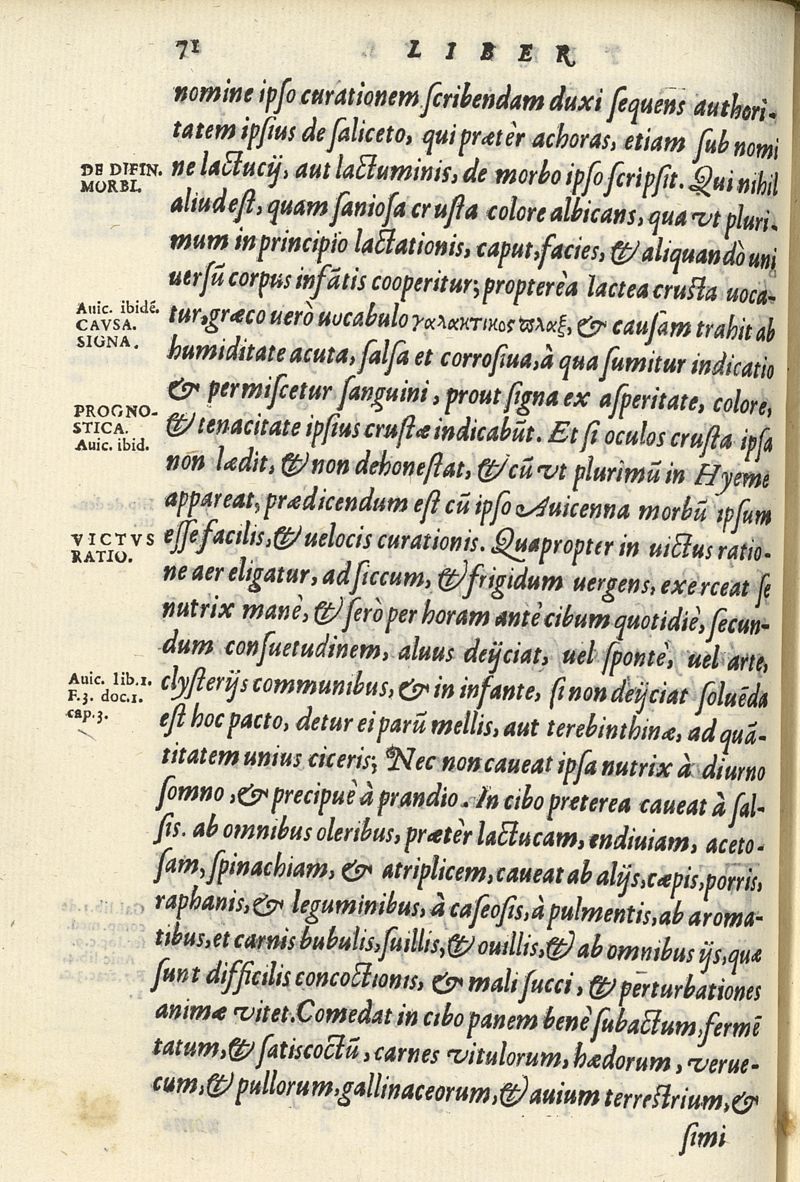 71 LIBER
nomine ipso curationem scribendam duxi sequens authori-
tatem ipsius de saliceto, qui prætèr achoras, etiam sub nomi
DE DIFIN. MORBI.
ne lactucij, aut lactuminis, de morbo ipso scripsit. Qui nihil
aliud est, quam saniosa crusta colore albicans, qua vt pluri-
mum in principio lactationis, caput, facies, & aliquandò uni
uersū corpus infātis cooperitur; propterèa lactea crusta uoca-
Auic. ibidē.
CAVSA.
SIGNA.
tur, græco uerò uocabulo γαλακτικος πλαξ, & causam trahit ab
humiditate acuta, salsa et corrosiua, à qua sumitur indicatio
& permiscetur sanguini, prout signa ex asperitate, colore,
PROGNO-
STICA.
Auic. ibid.
& tenacitate ipsius crustæ indicabūt. Et si oculos crusta ipsa
non lædit, & non dehonestat, & cū vt plurimū in Hyeme
appareat, prædicendum est cū ipso Auicenna morbū ipsum
VICTVS
RATIO.
esse facilis, & uelocis curationis. Quapropter in uictus ratio-
ne aer eligatur, ad siccum, & frigidum uergens, exerceat se
nutrix manè, & serò per horam antè cibum quotidiè, secun-
dum consuetudinem, aluus deijciat, uel spontè, uel arte,
Auic. lib. 1.
F. 3. doc. 1.
cap. 3.
clysterijs communibus, & in infante, si non deijciat soluēda
est hoc pacto, detur ei parū mellis, aut terebinthinæ, ad quā-
titatem unius ciceris; Nec non caueat ipsa nutrix à diurno
somno, & precipuè à prandio. In cibo preterea caueat à sal-
sis. ab omnibus oleribus, prætèr lactucam, endiuiam, aceto-
sam, spinachiam, & atriplicem, caueat ab alijs, cæpis, porris,
raphanis, & leguminibus, à caseosis, à pulmentis, ab aroma-
tibus, et carnis bubulis, suillis, & ouillis, & ab omnibus ijs, quæ
sunt difficilis concoctionis, & mali succi, & perturbationes
animæ vitet. Comedat in cibo panem benè subactum, fermē
tatum, & satis coctū, carnes vitulorum, hædorum, verue-
cum, & pullorum, gallinaceorum, & auium terrestrium, &
simi